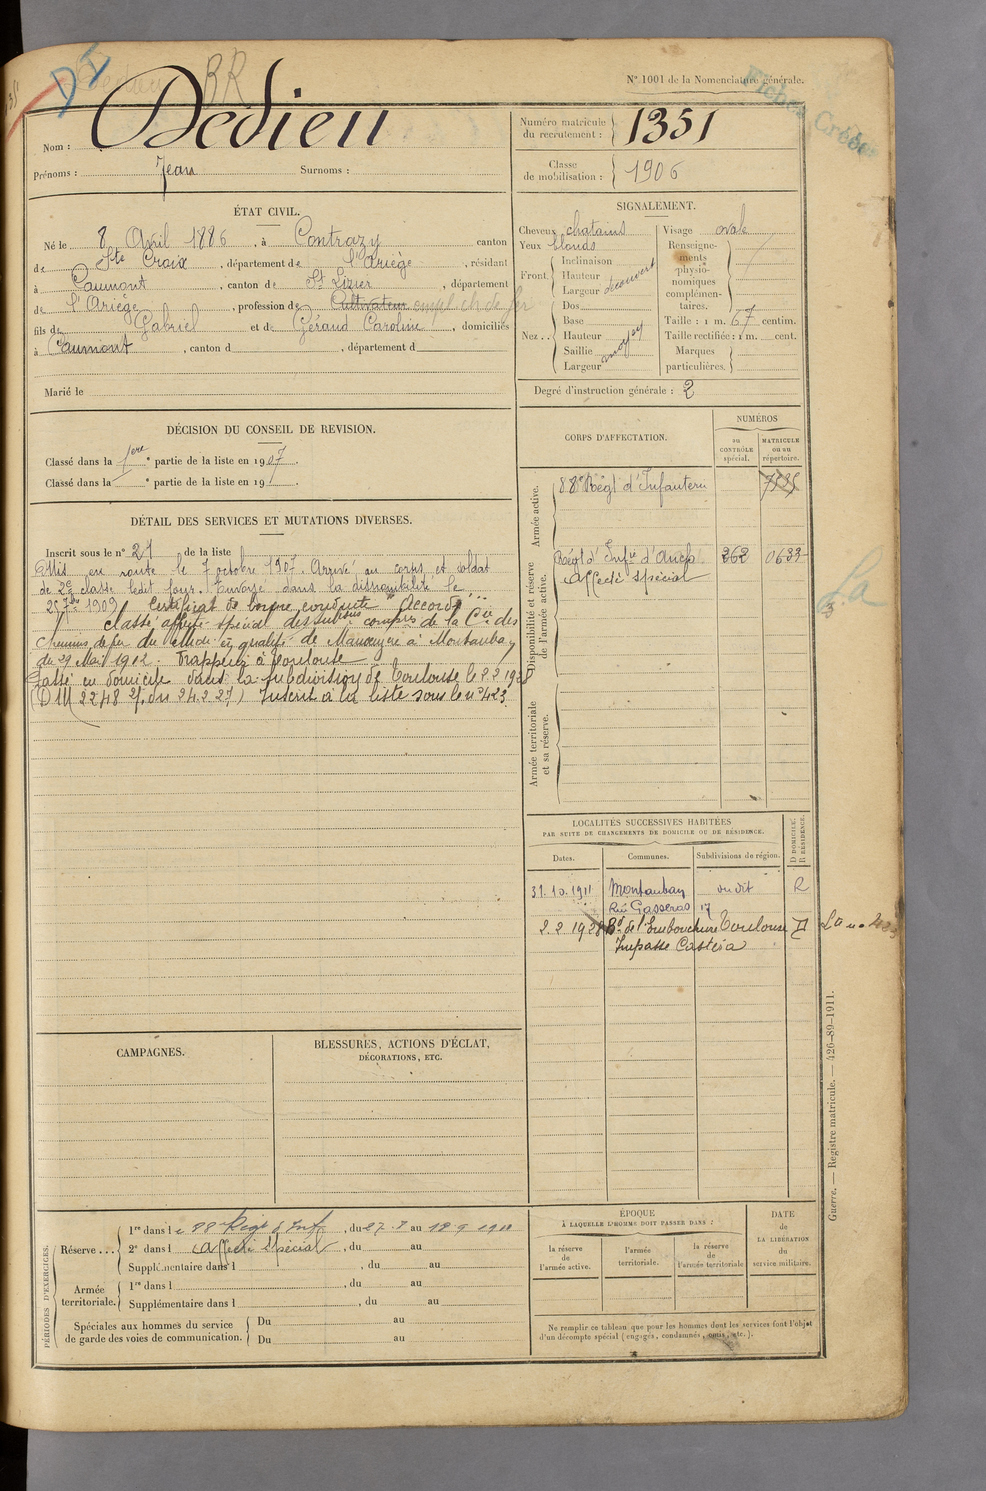 BR
N° 1001 de la Nomenclature générale.
Fiches Créées
Nom : Dedieu
Prénoms : Jean Surnoms :
Numéro matricule du recrutement : 1351
Classe de mobilisation : 1906
ÉTAT CIVIL.
Né le 8 Avril 1886, à Contrazy canton
de Ste Croix, département de l'Ariège, résidant
à Caumont, canton de St Lizier, département
de l'Ariège, profession de Cultivateur empl. ch. de fer
fils de Gabriel et de Géraud Caroline, domiciliés
à Caumont, canton d , département d
Marié le
SIGNALEMENT.
Cheveux chatains
Yeux blonds
Front. Inclinaison
Hauteur
Largeur découvert
Nez . . Dos
Base
Hauteur
Saillie
Largeur moyen
Visage ovale
Renseignements physionomiques complémentaires.
Taille : 1 m. 67 centim.
Taille rectifiée : 1 m. cent.
Marques particulières.
Degré d'instruction générale : 2
DÉCISION DU CONSEIL DE REVISION.
Classé dans la 1ere partie de la liste en 1907.
Classé dans la e partie de la liste en 19 .
DÉTAIL DES SERVICES ET MUTATIONS DIVERSES.
Inscrit sous le n° 27 de la liste
Mis en route le 7 octobre 1907. Arrivé au corps et soldat
de 2e classe ledit jour. Envoyé dans la disponibilité le
25 7bre 1909 Certificat de bonne conduite "Accordé"
Classé affecté spécial des subsons compés de la Cie des
chemins de fer du Midi en qualité de Manœuvre à Montauban
du 29 Mai 1912. Frappeur à Toulouse
Passé en domicile dans la subdivision de Toulouse le 2 2 1928
(D M 2248 du 24.2.27) Inscrit à la liste sous le n° 423
CORPS D'AFFECTATION.
NUMÉROS
au CONTRÔLE spécial.
MATRICULE ou au répertoire.
Armée active.
88e Régt d'Infanterie 7535
Disponibilité et réserve de l'armée active.
Régt d'Infie d'Auch 262 0633
Affecté spécial
Armée territoriale et sa réserve.
La
LOCALITÉS SUCCESSIVES HABITÉES
PAR SUITE DE CHANGEMENTS DE DOMICILE OU DE RÉSIDENCE.
Dates. Communes. Subdivisions de région. D DOMICILE. R RÉSIDENCE.
31.10.1911 Montauban dudit R
Rue Gasseras 17
2.2.1928 Bd de l'Embouchure Toulouse D La n° 423
Impasse Castéra
CAMPAGNES.
BLESSURES, ACTIONS D'ÉCLAT,
DÉCORATIONS, ETC.
PÉRIODES D'EXERCICES.
Réserve . . . 1re dans le 88 Régt d'Inf, du 27.8 au 18 9 1911
2e dans l Affecté Spécial, du au
Supplémentaire dans l , du au
Armée territoriale. 1re dans l , du au
Supplémentaire dans l , du au
Spéciales aux hommes du service de garde des voies de communication. Du au
Du au
ÉPOQUE
À LAQUELLE L'HOMME DOIT PASSER DANS :
la réserve de l'armée active.
l'armée territoriale.
la réserve de l'armée territoriale
DATE de LA LIBÉRATION du service militaire.
Ne remplir ce tableau que pour les hommes dont les services font l'objet
d'un décompte spécial (engagés, condamnés, omis, etc.).
Guerre. — Registre matricule. — 426-89-1911.